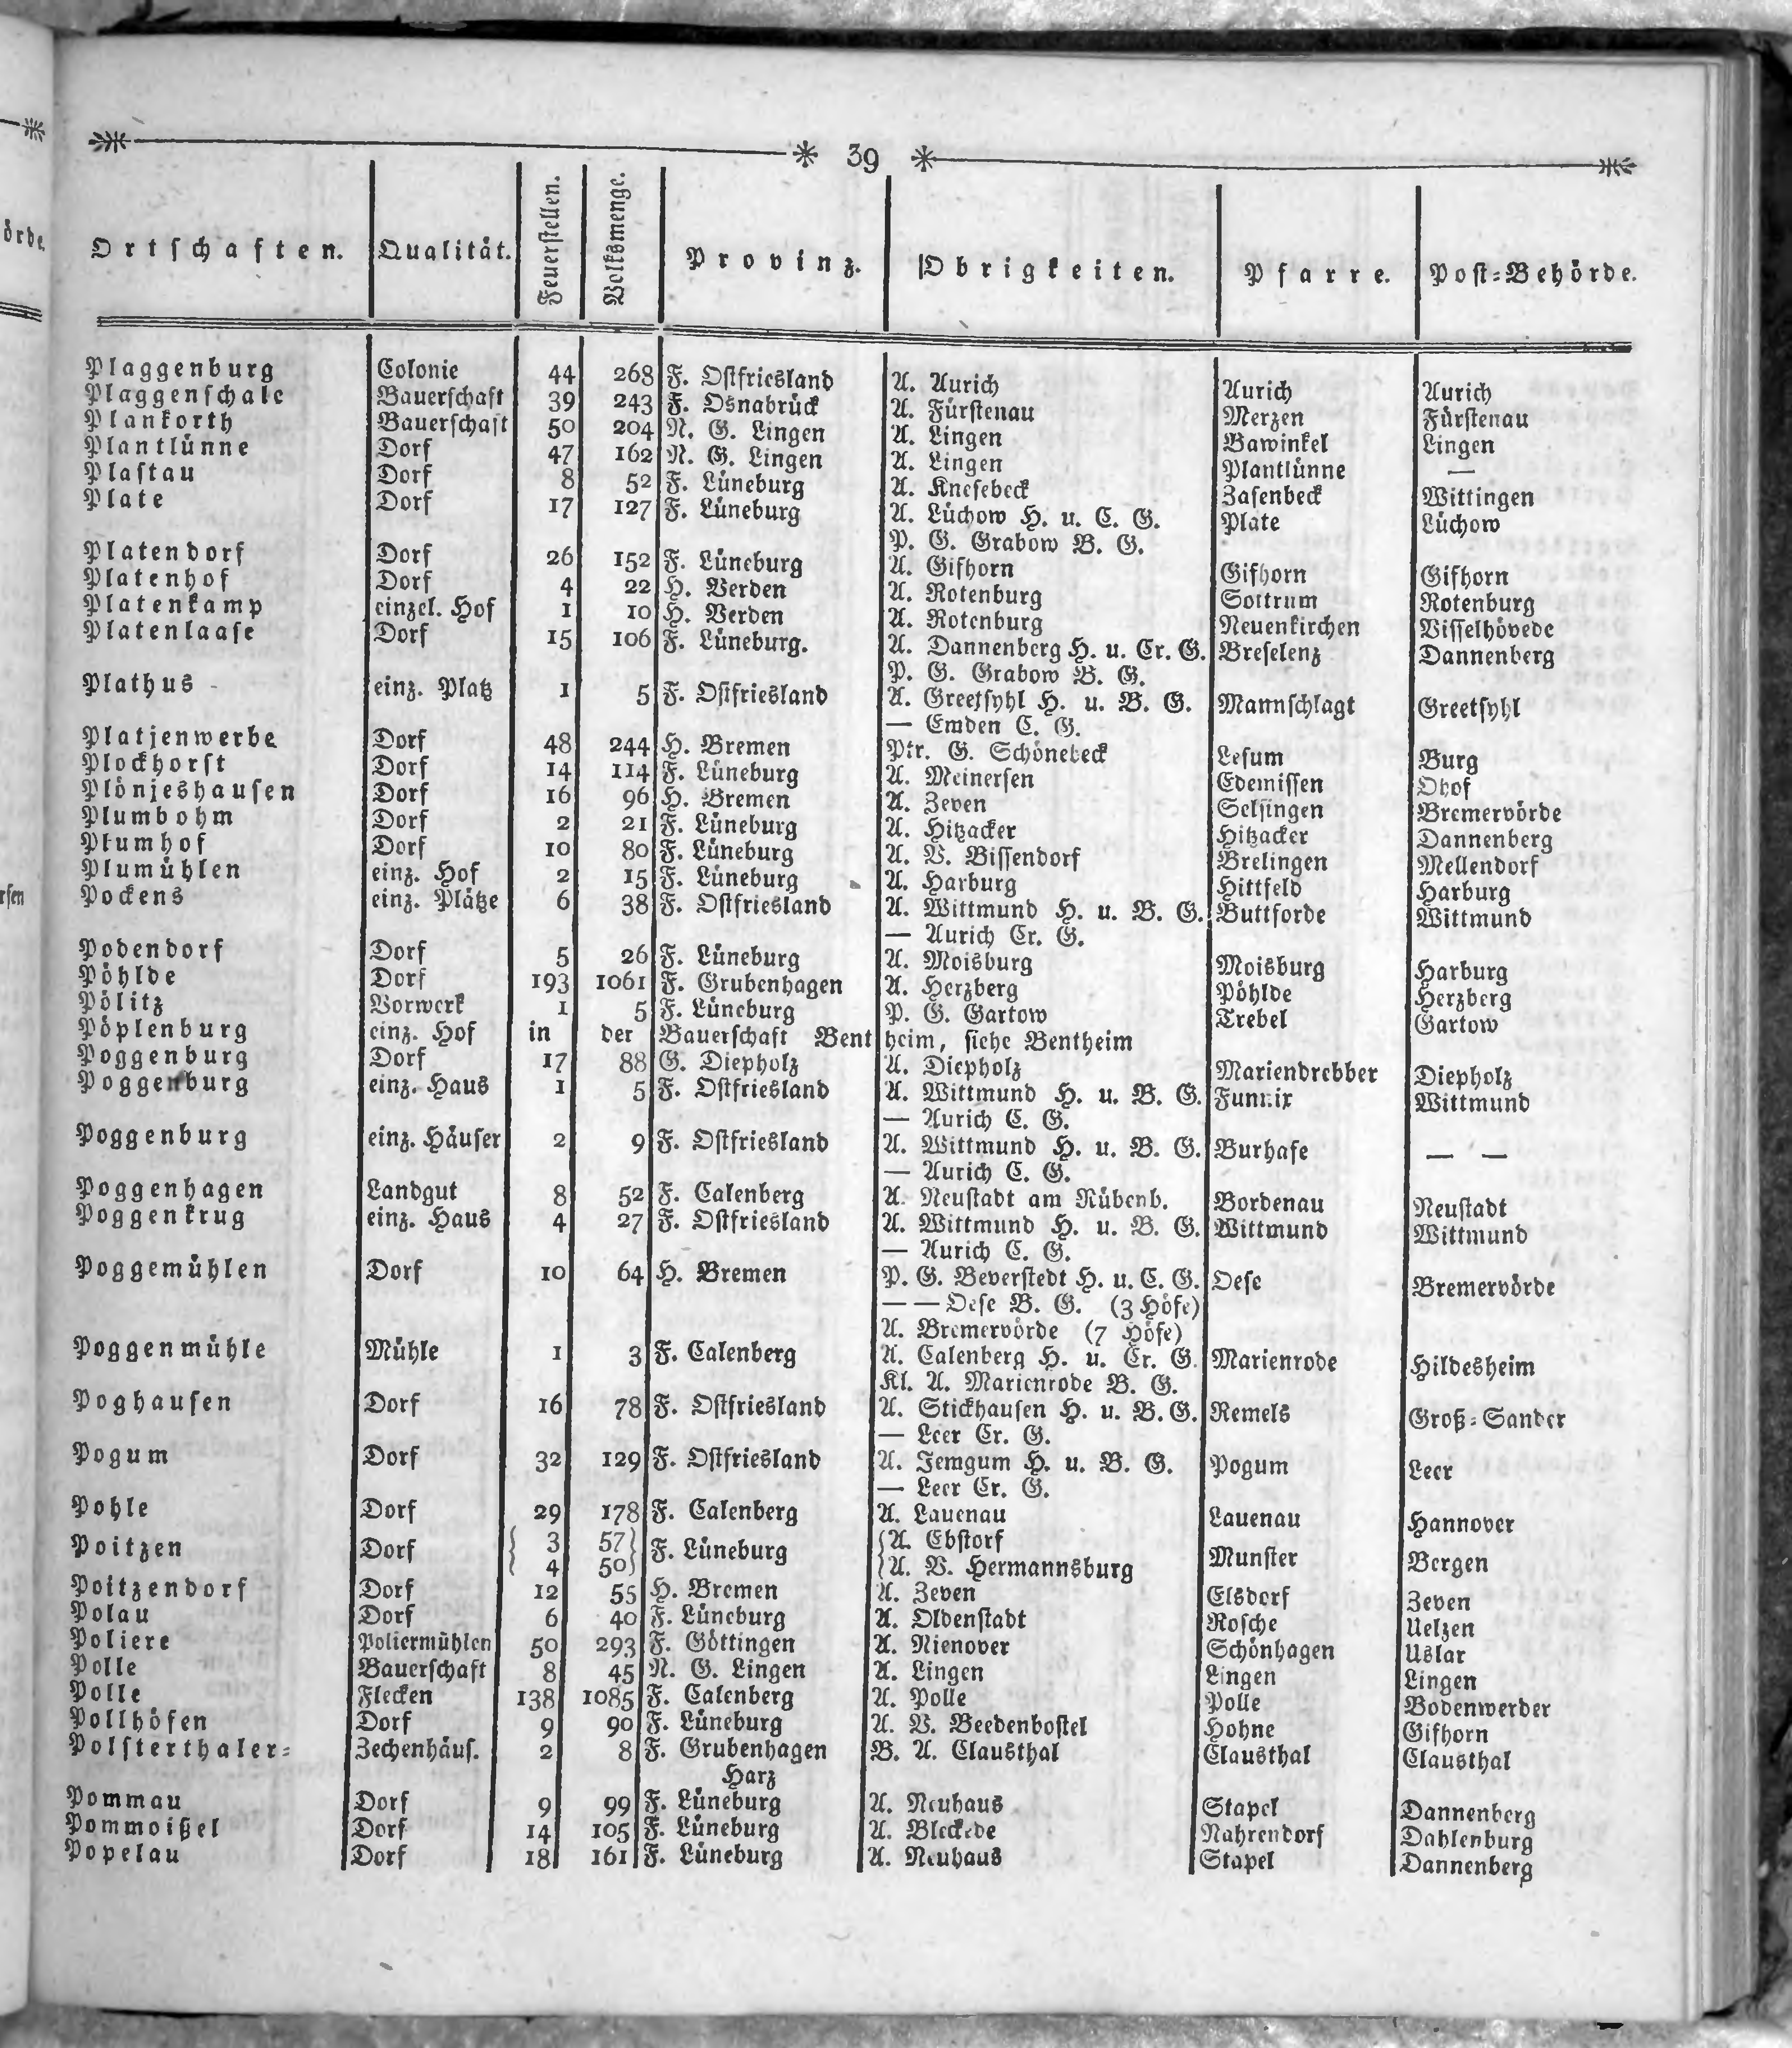 39
Ortschaften. Qualität. Feuerstellen. Volksmenge. Provinz. Obrigkeiten. Pfarre. Post-Behörde.
Plaggenburg Colonie 44 268 F. Ostfriesland A. Aurich Aurich Aurich
Plaggenschale Bauerschaft 39 243 F. Osnabrück A. Fürstenau Merzen Fürstenau
Plankorth Bauerschaft 50 204 N. G. Lingen A. Lingen Bawinkel Lingen
Plantlünne Dorf 47 162 N. G. Lingen A. Lingen Plantlünne —
Plastau Dorf 8 52 F. Lüneburg A. Knesebeck Zasenbeck Wittingen
Plate Dorf 17 127 F. Lüneburg A. Lüchow H. u. C. G. Plate Lüchow
P. G. Grabow B. G.
Platendorf Dorf 26 152 F. Lüneburg A. Gifhorn Gifhorn Gifhorn
Platenhof Dorf 4 22 H. Verden A. Rotenburg Sottrum Rotenburg
Platenkamp einzel. Hof 1 10 H. Verden A. Rotenburg Neuenkirchen Visselhövede
Platenlaase Dorf 15 106 F. Lüneburg. A. Dannenberg H. u. Cr. G. Breselenz Dannenberg
P. G. Grabow B. G.
Plathus einz. Platz 1 5 F. Ostfriesland A. Greetsyhl H. u. B. G. Mannschlagt Greetsyhl
— Emden C. G.
Platjenwerbe Dorf 48 244 H. Bremen Ptr. G. Schönebeck Lesum Burg
Plockhorst Dorf 14 114 F. Lüneburg A. Meinersen Edemissen Ohof
Plönjeshausen Dorf 16 96 H. Bremen A. Zeven Selsingen Bremervörde
Plumbohm Dorf 2 21 F. Lüneburg A. Hitzacker Hitzacker Dannenberg
Plumhof Dorf 10 80 F. Lüneburg A. V. Bissendorf Brelingen Mellendorf
Plumühlen einz. Hof 2 15 F. Lüneburg A. Harburg Hittfeld Harburg
Pockens einz. Plätze 6 38 F. Ostfriesland A. Wittmund H. u. B. G. Buttforde Wittmund
— Aurich Cr. G.
Podendorf Dorf 5 26 F. Lüneburg A. Moisburg Moisburg Harburg
Pöhlde Dorf 193 1061 F. Grubenhagen A. Herzberg Pöhlde Herzberg
Pölitz Vorwerk 1 5 F. Lüneburg P. G. Gartow Trebel Gartow
Pöplenburg einz. Hof in der Bauerschaft Bentheim, siehe Bentheim
Poggenburg Dorf 17 88 G. Diepholz A. Diepholz Mariendrebber Diepholz
Poggenburg einz. Haus 1 5 F. Ostfriesland A. Wittmund H. u. B. G. Funnix Wittmund
— Aurich C. G.
Poggenburg einz. Häuser 2 9 F. Ostfriesland A. Wittmund H. u. B. G. Burhafe — —
— Aurich C. G.
Poggenhagen Landgut 8 52 F. Calenberg A. Neustadt am Rübenb. Bordenau Neustadt
Poggenkrug einz. Haus 4 27 F. Ostfriesland A. Wittmund H. u. B. G. Wittmund Wittmund
— Aurich C. G.
Poggemühlen Dorf 10 64 H. Bremen P. G. Beverstedt H. u. C. G. Oese Bremervörde
— — Oese B. G. (3 Höfe)
A. Bremervörde (7 Höfe)
Poggenmühle Mühle 1 3 F. Calenberg A. Calenberg H. u. Cr. G. Marienrode Hildesheim
Kl. A. Marienrode B. G.
Poghausen Dorf 16 78 F. Ostfriesland A. Stickhausen H. u. B. G. Remels Groß-Sander
— Leer Cr. G.
Pogum Dorf 32 129 F. Ostfriesland A. Jemgum H. u. B. G. Pogum Leer
— Leer Cr. G.
Pohle Dorf 29 178 F. Calenberg A. Lauenau Lauenau Hannover
Poitzen Dorf { 3 57 } F. Lüneburg { A. Ebstorf Munster Bergen
{ 4 50 } { A. V. Hermannsburg
Poitzendorf Dorf 12 55 H. Bremen A. Zeven Elsdorf Zeven
Polau Dorf 6 40 F. Lüneburg A. Oldenstadt Rosche Uelzen
Poliere Poliermühlen 50 293 F. Göttingen A. Nienover Schönhagen Uslar
Polle Bauerschaft 8 45 N. G. Lingen A. Lingen Lingen Lingen
Polle Flecken 138 1085 F. Calenberg A. Polle Polle Bodenwerder
Pollhöfen Dorf 9 90 F. Lüneburg A. V. Beedenbostel Hohne Gifhorn
Polsterthaler- Zechenhäus. 2 8 F. Grubenhagen B. A. Clausthal Clausthal Clausthal
Harz
Pommau Dorf 9 99 F. Lüneburg A. Neuhaus Stapel Dannenberg
Pommoißel Dorf 14 105 F. Lüneburg A. Bleckede Nahrendorf Dahlenburg
Popelau Dorf 18 161 F. Lüneburg A. Neuhaus Stapel Dannenberg